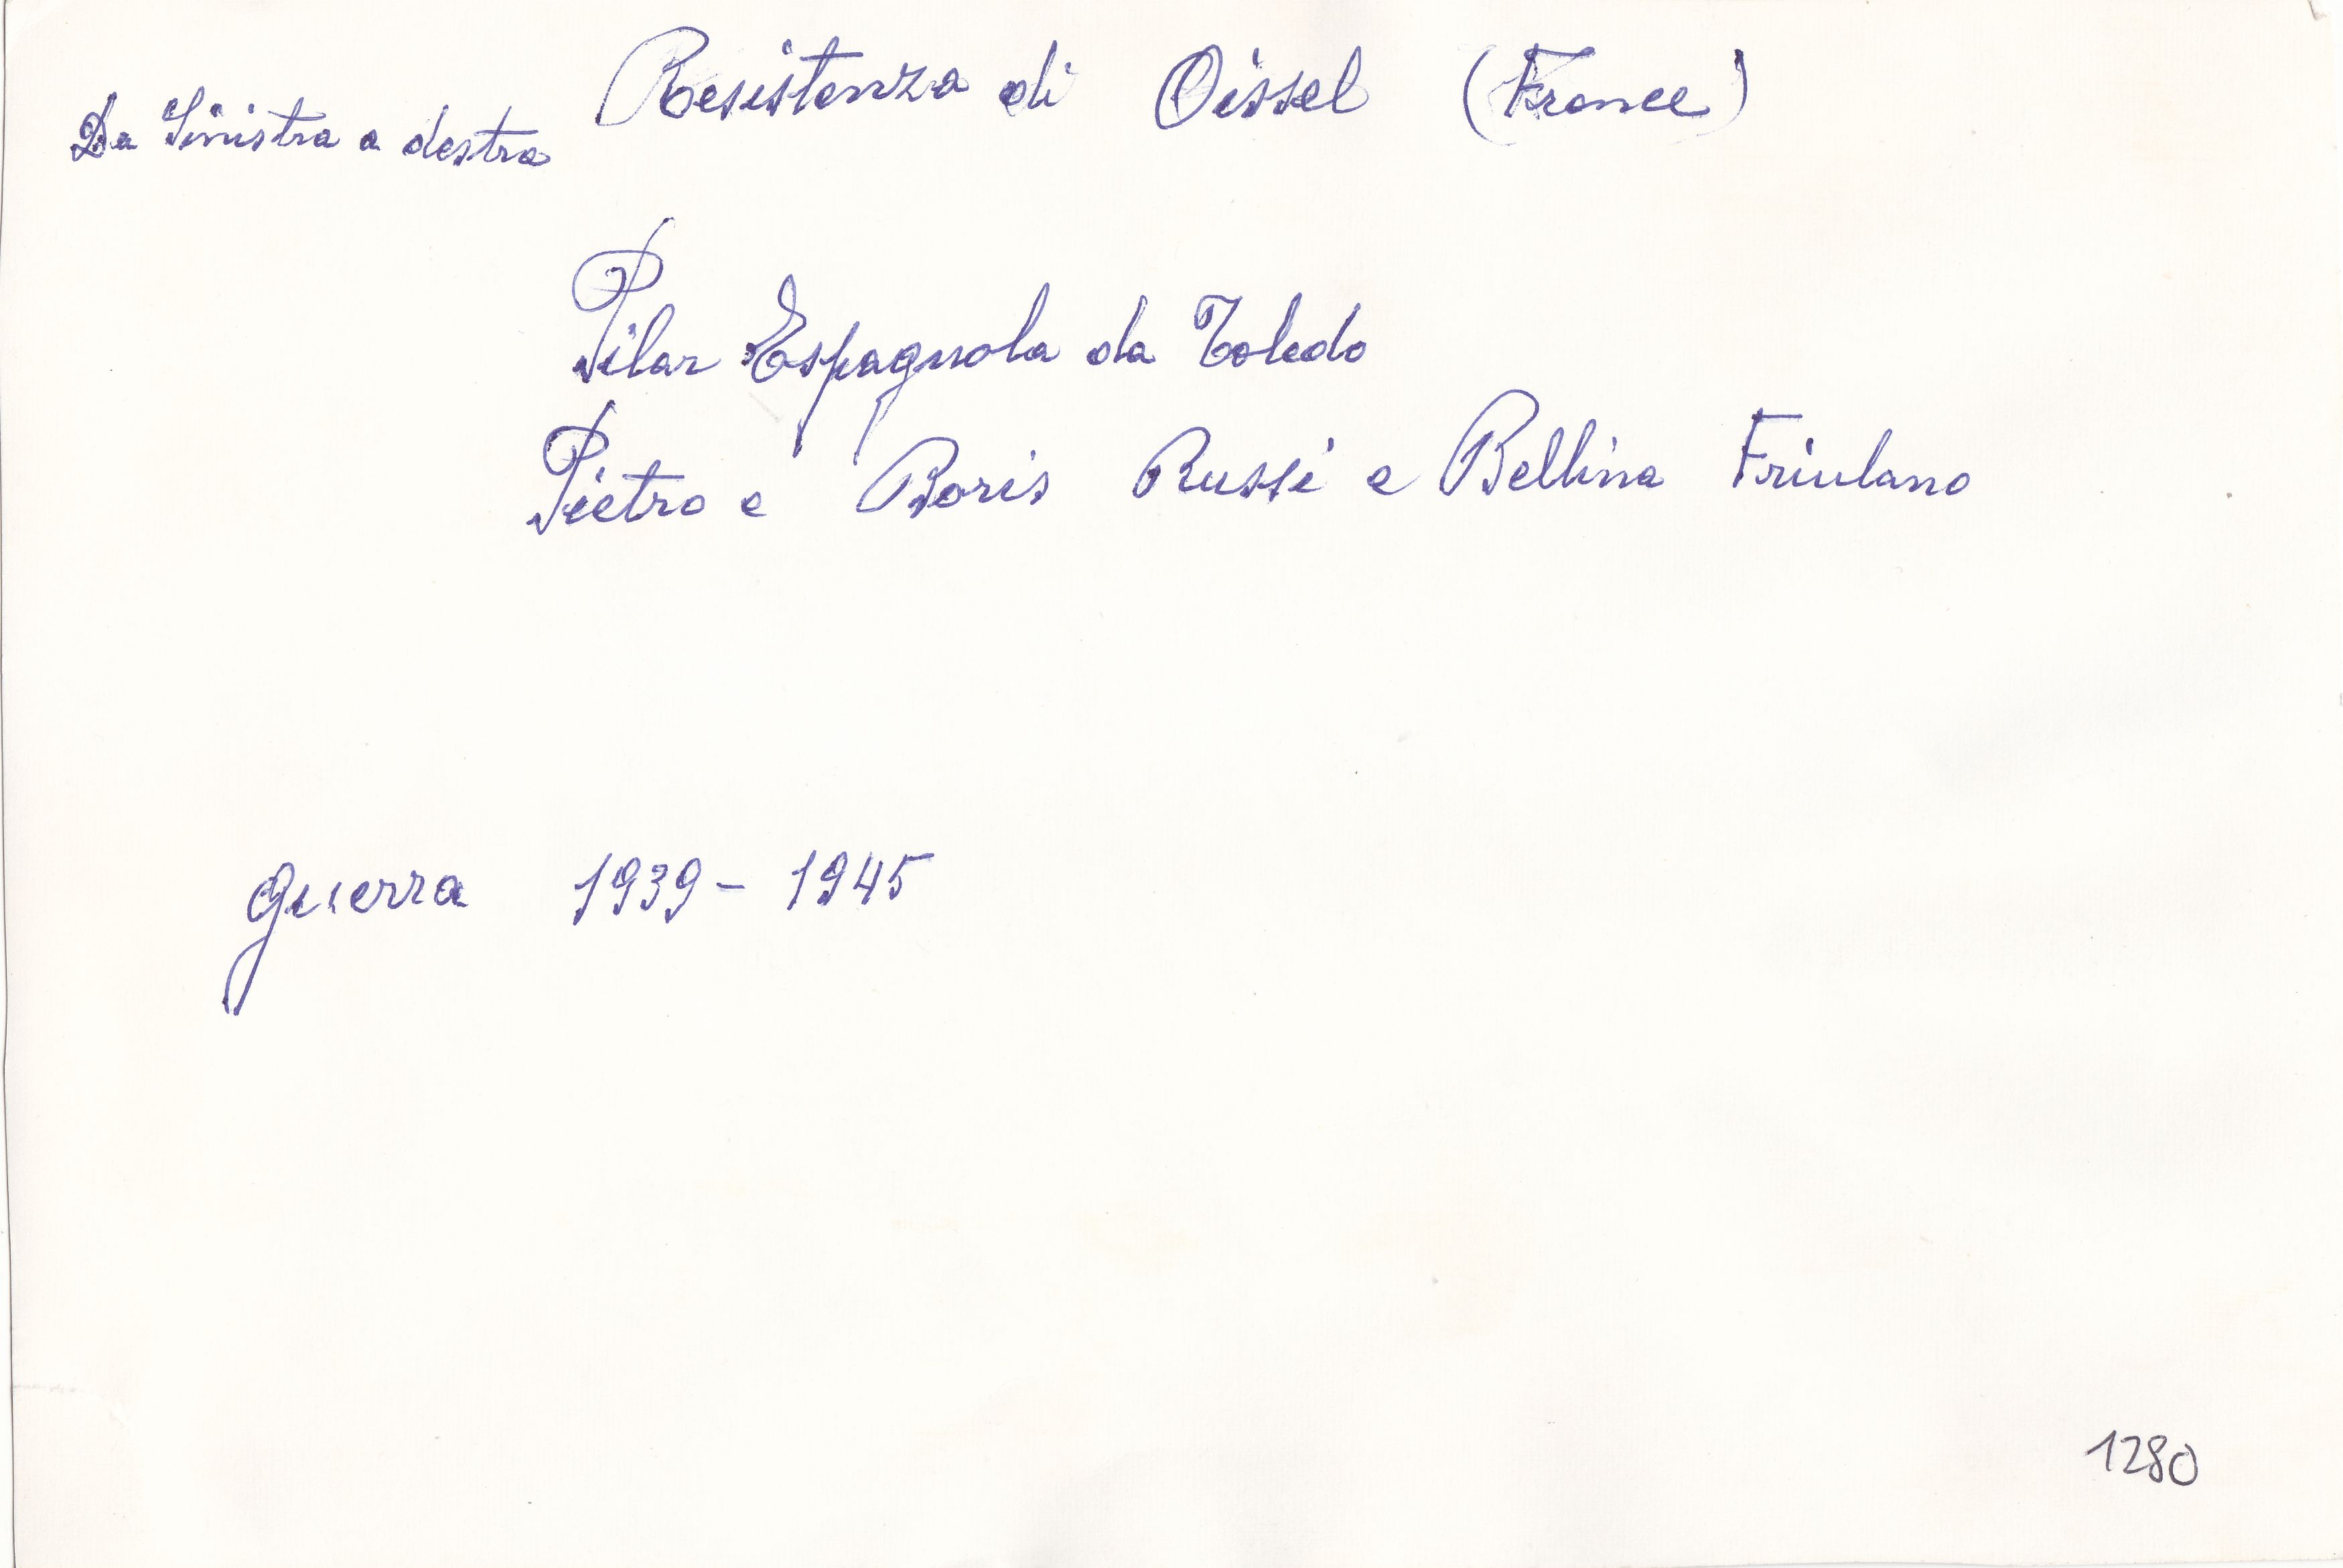 Resistenza di Oissel (France)
Da Sinistra a destra
Pilar Espagnola da Toledo
Pietro e Boris Russi e Bellina Friulano
Guerra 1939 - 1945
1280